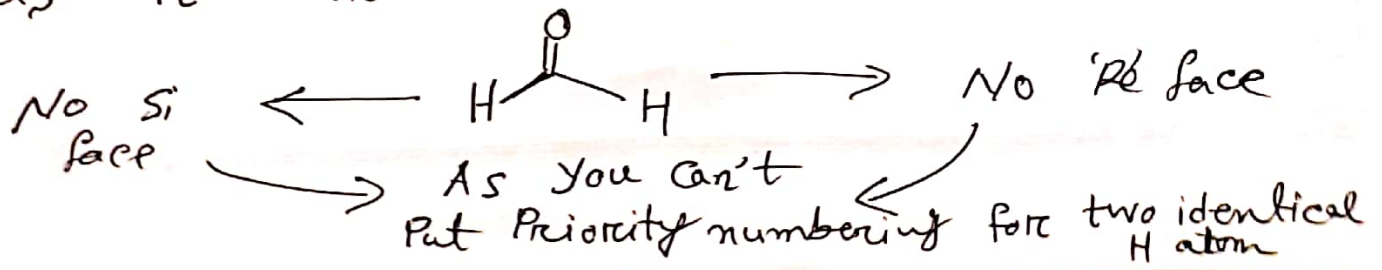 O
No Si face
H
H
No 'Re' face
As you can't
Put Priority numbering for two identical
H atom